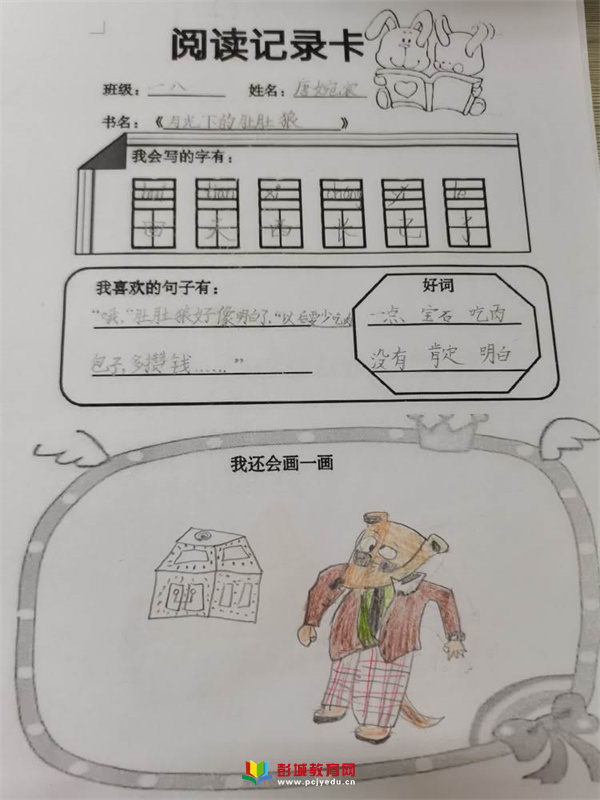 阅读记录卡
班级：一八 姓名：
书名：《月光下的肚肚狼》
我会写的字有：
tián tiān xī cháng yǐ le
田 天 西 长 已 了
我喜欢的句子有：
“哦，”肚肚狼好像明白了，“以后要少吃肉
包子，多攒钱……”
好词
一点 宝石 吃肉
没有 肯定 明白
我还会画一画
彭城教育网
www.pcjyedu.cn